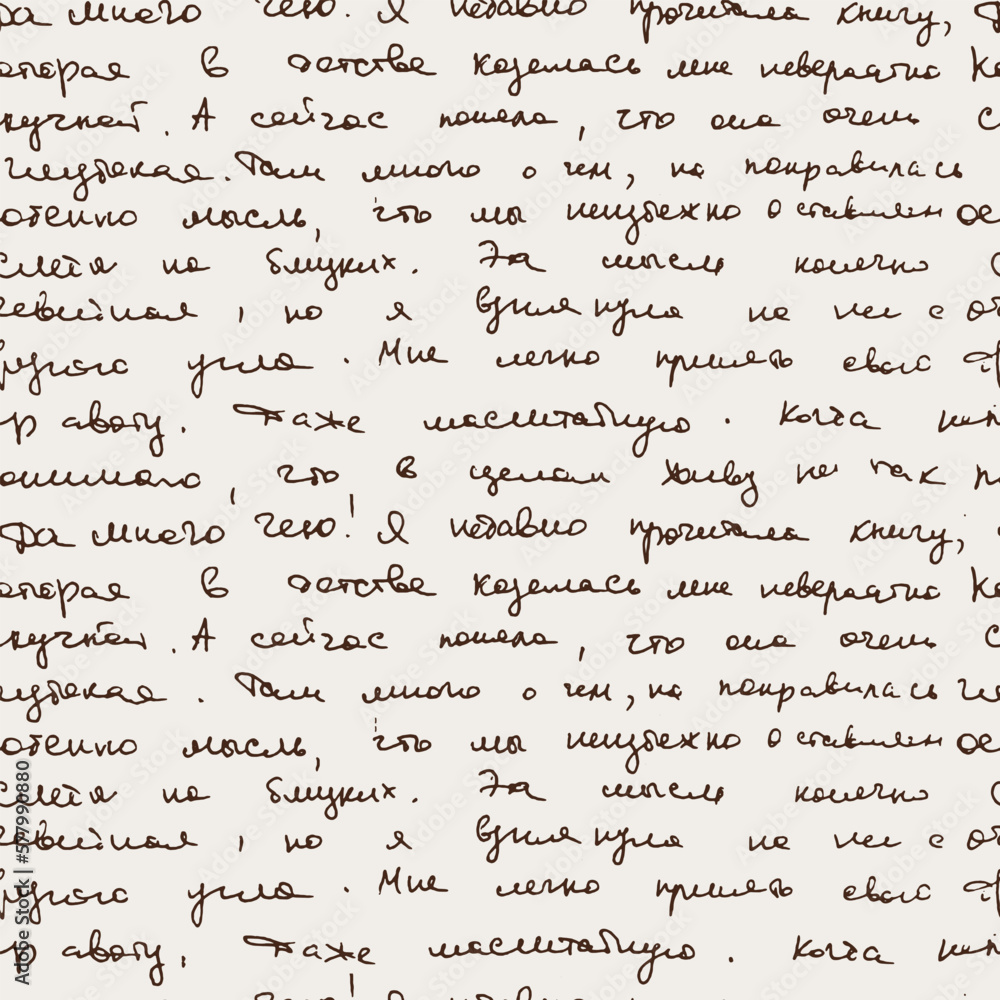 Да много чего! Я недавно прочитала книгу,
оторая в детстве казалась мне невероятно
кучной. А сейчас поняла, что она очень
глубокая. Там много о чем, но понравилась
мысль, что мы неизбежно оставляем
на близких. Эта мысль конечно
но я взглянула на нее с
другого угла. Мне легко принять свою
авоту. Даже масштабную. Когда
онимаю, что в целом живу не так
Да много чего! Я недавно прочитала книгу,
оторая в детстве казалась мне невероятно
кучной. А сейчас поняла, что она очень
глубокая. Там много о чем, но понравилась
мысль, что мы неизбежно оставляем
на близких. Эта мысль конечно
но я взглянула на нее с
другого угла. Мне легко принять свою
авоту. Даже масштабную. Когда
Adobe Stock | #577990880